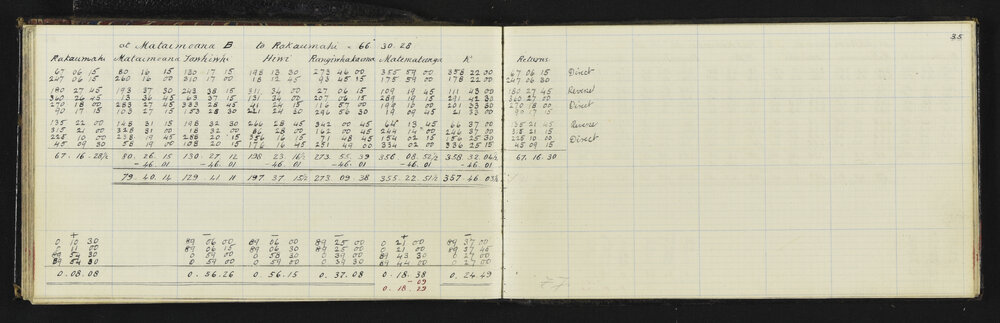 35
at Mataimoana B to Rakaumahi - 66° 30. 28
Rakaumahi Mataimoana Hiwi Rangiwhakaoma Matematonga K' Returns
67 06 15 80 16 15 130 17 15 198 13 30 273 46 00 355 59 00 358 22 00 67 06 15 Direct
247 06 15 260 16 00 310 17 00 18 12 45 93 45 178 22 00 247 06 30
180 27 45 193 37 30 243 38 15 311 34 00 27 06 15 109 19 45 111 43 00 180 27 45 Reverse
360 26 45 13 36 45 63 37 15 131 34 00 207 06 15 289 19 15 291 42 30 360 27 00
270 18 00 283 27 45 333 28 45 41 24 15 116 57 00 201 33 00 270 18 00 Direct
90 17 15 103 27 15 153 28 30 221 24 30 296 56 30 19 09 45 21 33 00 90 17 15
135 22 00 148 31 15 198 32 30 266 28 45 342 00 45 13 45 66 37 00 135 21 45 Reverse
315 21 00 328 31 00 18 32 00 86 28 00 162 00 45 244 14 246 37 00 315 21 15
225 10 00 238 19 45 288 20 15 356 16 15 71 48 45 154 02 15 156 25 30 225 10 00 Direct
45 09 30 58 19 00 108 20 15 176 16 45 251 49 00 334 02 00 336 25 15 45 09 15
67. 16. 28½ 80. 26. 15 130. 27. 12 198 23 16½ 273. 55. 39 356 08. 52½ 358 32 04½ 67. 16. 30
-46. 01 -46. 01 -46. 01 -46. 01 -46. 01 -46. 01
79. 40. 14 129. 41. 11 197. 37. 15½ 273. 09. 38 355. 22. 51½ 357. 46. 03½
+ - - - + -
0 10 30 89 06 00 89 06 30 89 25 00 0 21 00 89 37 00
0 11 00 89 06 15 89 06 30 89 25 00 0 21 00 89 37 45
89 54 30 0 59 00 0 58 30 0 39 00 89 43 30 0 27 00
89 54 30 0 59 00 0 59 00 0 39 30 89 44 00 0 27 00
0. 08. 08 0. 56. 26 0 56. 15 0. 37. 08 0. 18. 38 0. 24. 49
- 09
0. 18. 29